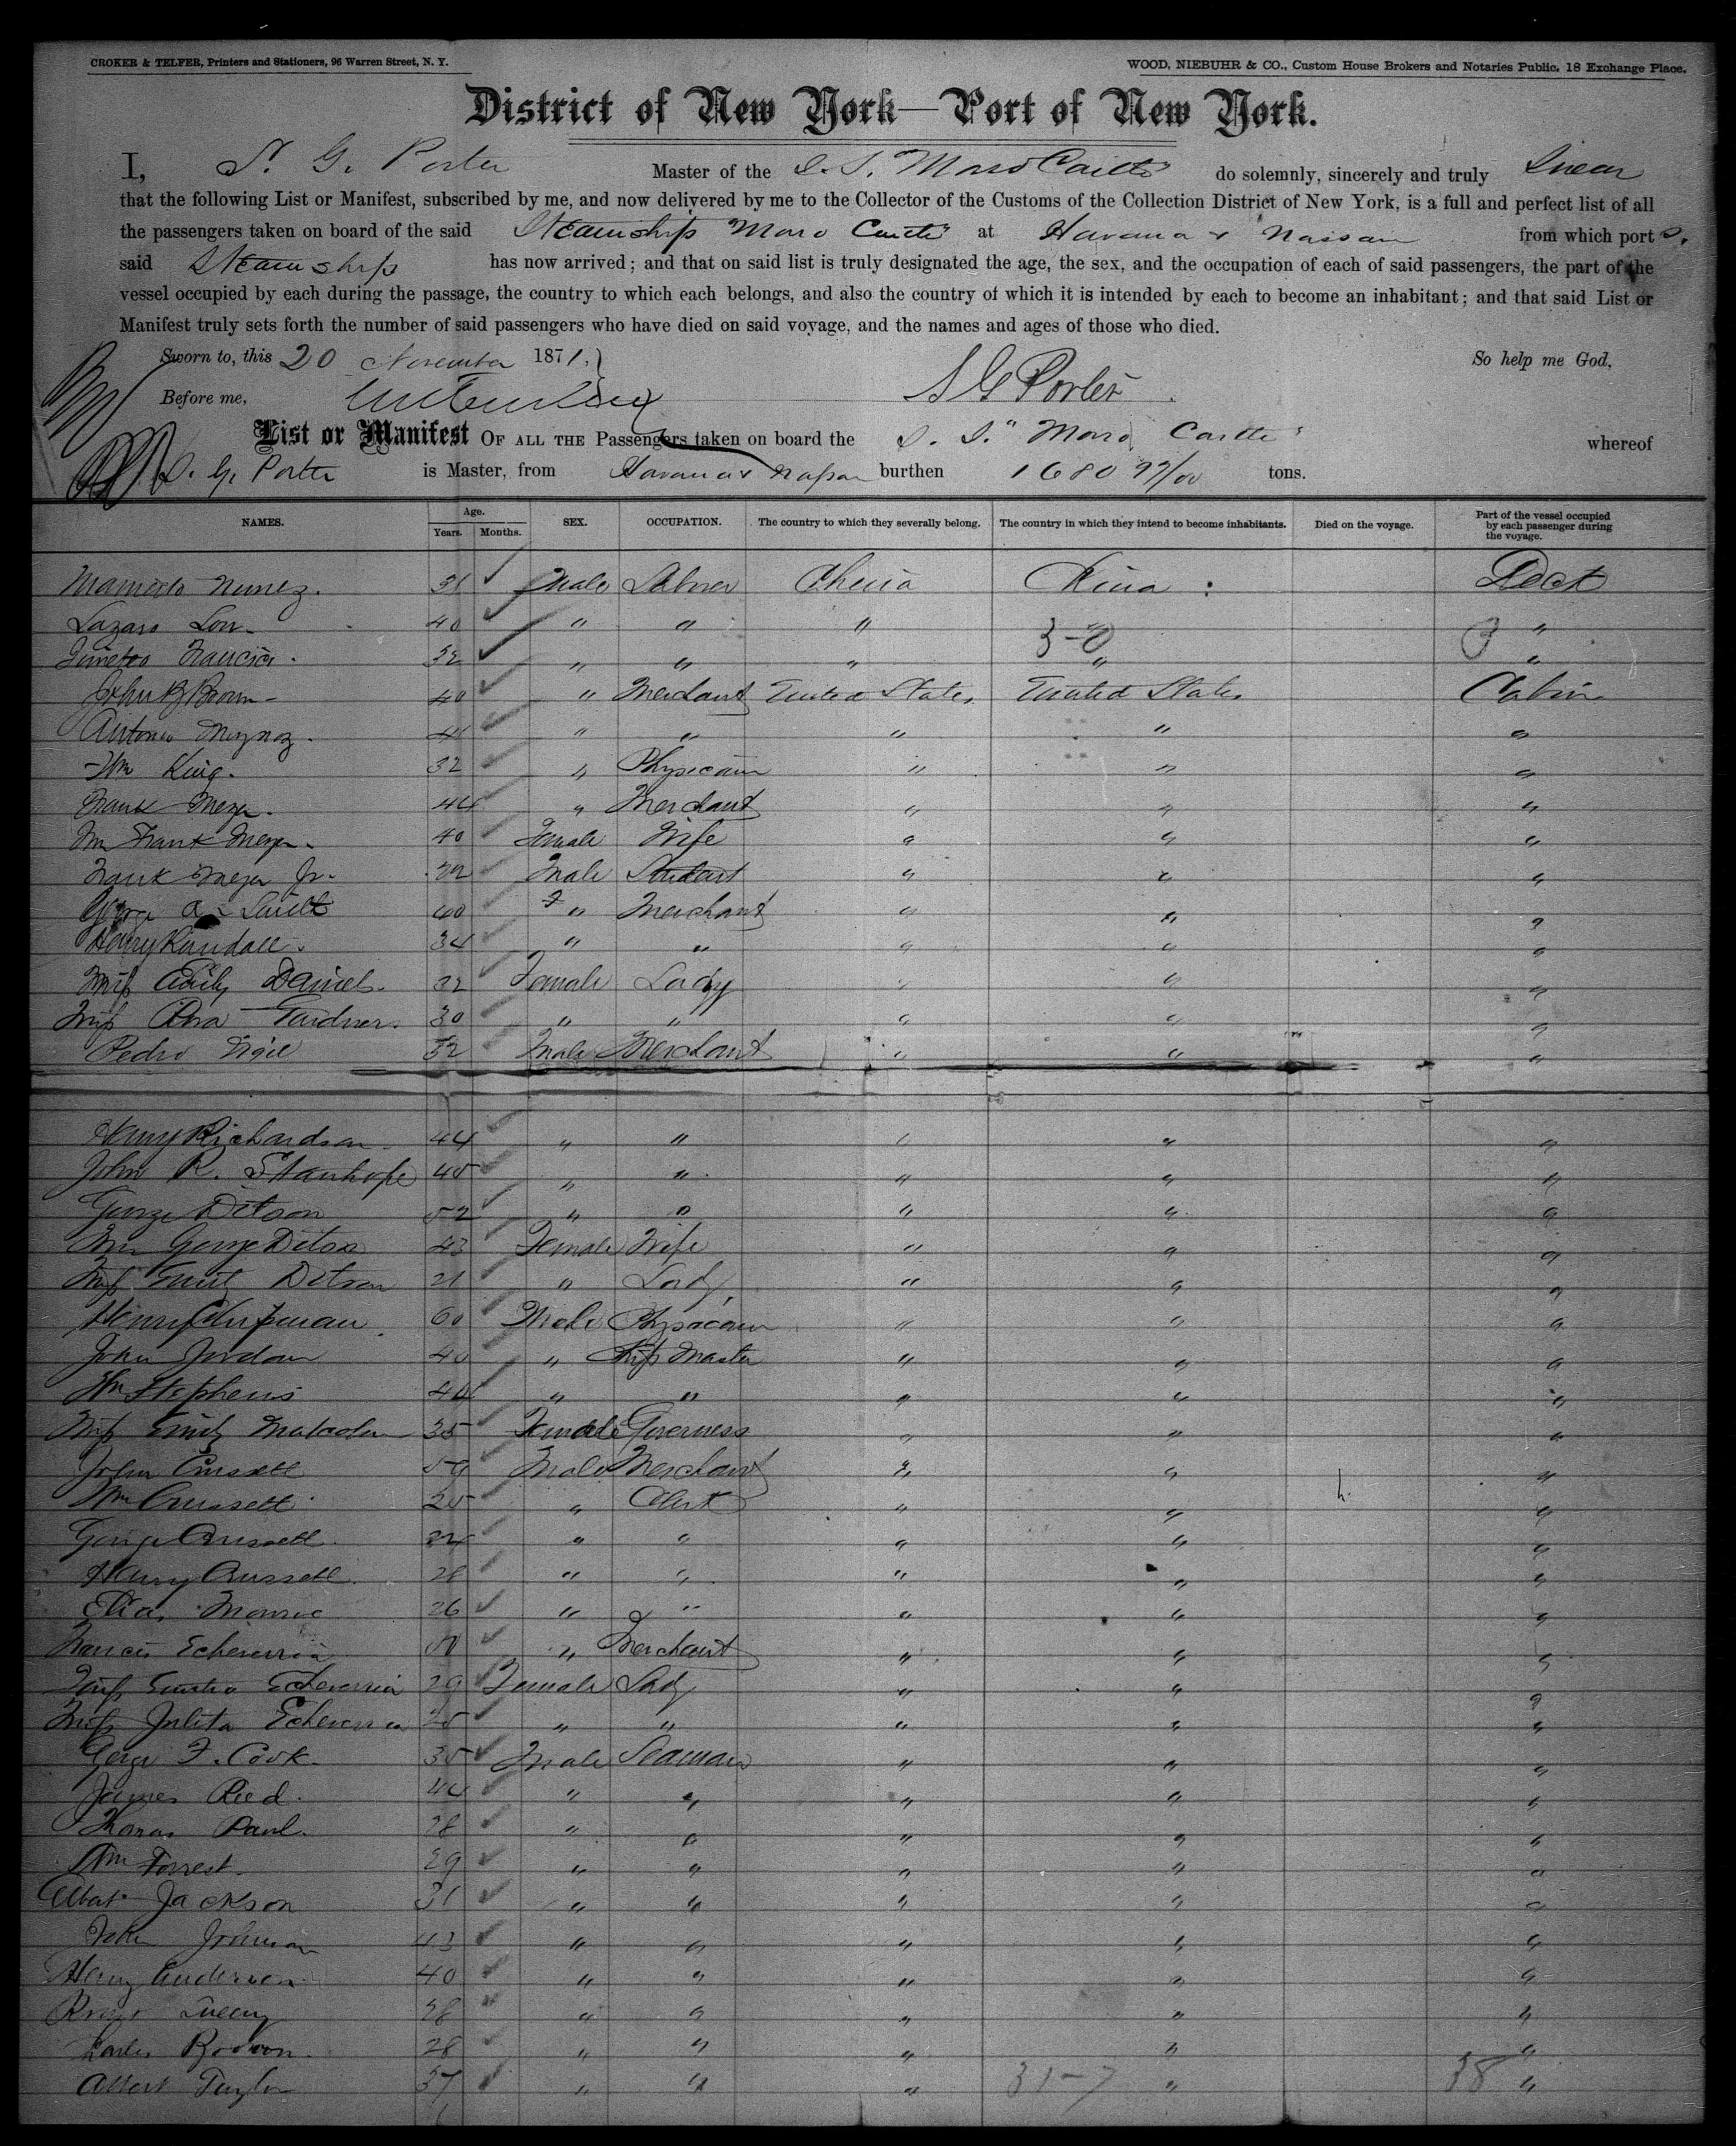 CROKER & TELFER, Printers and Stationers, 96 Warren Street, N. Y.
WOOD, NIEBUHR & CO., Custom House Brokers and Notaries Public, 18 Exchange Place.
District of New York—Port of New York.
I, S. G. Porter Master of the S. S. "Moro Castle" do solemnly, sincerely and truly Swear
that the following List or Manifest, subscribed by me, and now delivered by me to the Collector of the Customs of the Collection District of New York, is a full and perfect list of all
the passengers taken on board of the said Steamship "Moro Castle" at Havana & Nassau from which port s.
said Steamship has now arrived; and that on said list is truly designated the age, the sex, and the occupation of each of said passengers, the part of the
vessel occupied by each during the passage, the country to which each belongs, and also the country of which it is intended by each to become an inhabitant; and that said List or
Manifest truly sets forth the number of said passengers who have died on said voyage, and the names and ages of those who died.
Sworn to, this 20 November 1871. So help me God,
Before me, S G Porter
List or Manifest OF ALL THE Passengers taken on board the S. S. "Moro Castle" whereof
S. G. Porter is Master, from Havana & Nassau burthen 1680 tons.
NAMES. Age. Years. Months. SEX. OCCUPATION. The country to which they severally belong. The country in which they intend to become inhabitants. Died on the voyage. Part of the vessel occupied by each passenger during the voyage.
Nunez. 31 Male Labrer China China Deck
Lazaro 40 " " " " "
Francisco 32 " " " 3-0 " "
John B Brown 40 " Merchant United States United States Cabin
Antonio 41 " " " " "
Wm King. 32 " Physician " " "
Frank Meyer. 44 " Merchant " " "
Mrs Frank Meyer 40 Female Wife " " "
Frank Meyer Jr. 22 Male Student " " "
George A. 40 " Merchant " " "
Henry Randall. 34 " " " " "
Miss Daniels. 32 Female Lady " " "
Miss Gardner. 30 " " " " "
Pedro 32 Male Merchant " " "
Henry Richardson 44 " " " " "
John R. Stanhope 45 " " " " "
George Ditson 52 " " " " "
Mrs George Ditson 43 Female Wife " " "
Miss Ditson 21 " Lady " " "
Henry Chipman 60 Male Physician " " "
John Jordan 40 " Ship Master " " "
Wm Stephens 44 " " " " "
Miss Emily 35 Female Governess " " "
John 59 Male Merchant " " "
Wm 25 " Clerk " " "
George 24 " " " " "
Henry 28 " " " " "
Elias Monroe 26 " " " " "
Francis Echeverria " Merchant " " "
Miss Echeverria 29 Female Lady " " "
Miss Julita Echeverria 25 " " " " "
George F. Cook. 35 Male Seaman " " "
James Reed. 44 " " " " "
Thomas Paul. 28 " " " " "
Wm Forrest. 29 " " " " "
Jackson 31 " " " " "
John Johnson 43 " " " " "
Henry Anderson 40 " " " " "
28 " " " " "
Charles Brown. 28 " " " " "
Albert Taylor 37 " " " 31-7 " 38 "